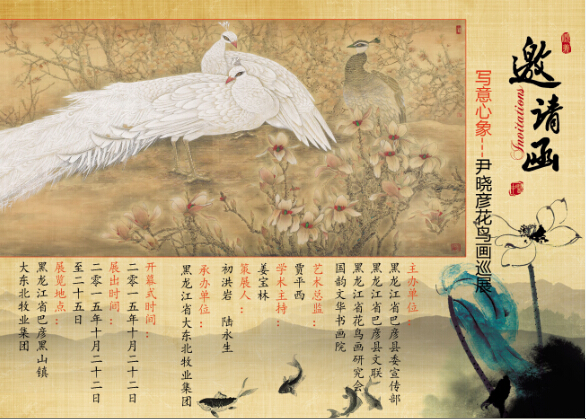 邀请函
Invitations
写意心象---尹晓彦花鸟画巡展
主办单位：
黑龙江省巴彦县委宣传部
黑龙江省巴彦县文联
黑龙江省花鸟画研究会
国韵文华书画院
艺术总监：
贾平西
学术主持：
姜宝林
策展人：
初洪岩 陆永生
承办单位：
黑龙江省大东北牧业集团
开幕式时间：
二零一五年十月二十二日
展出时间：
二零一五年十月二十二日
至二十五日
展览地点：
黑龙江省巴彦黑山镇
大东北牧业集团